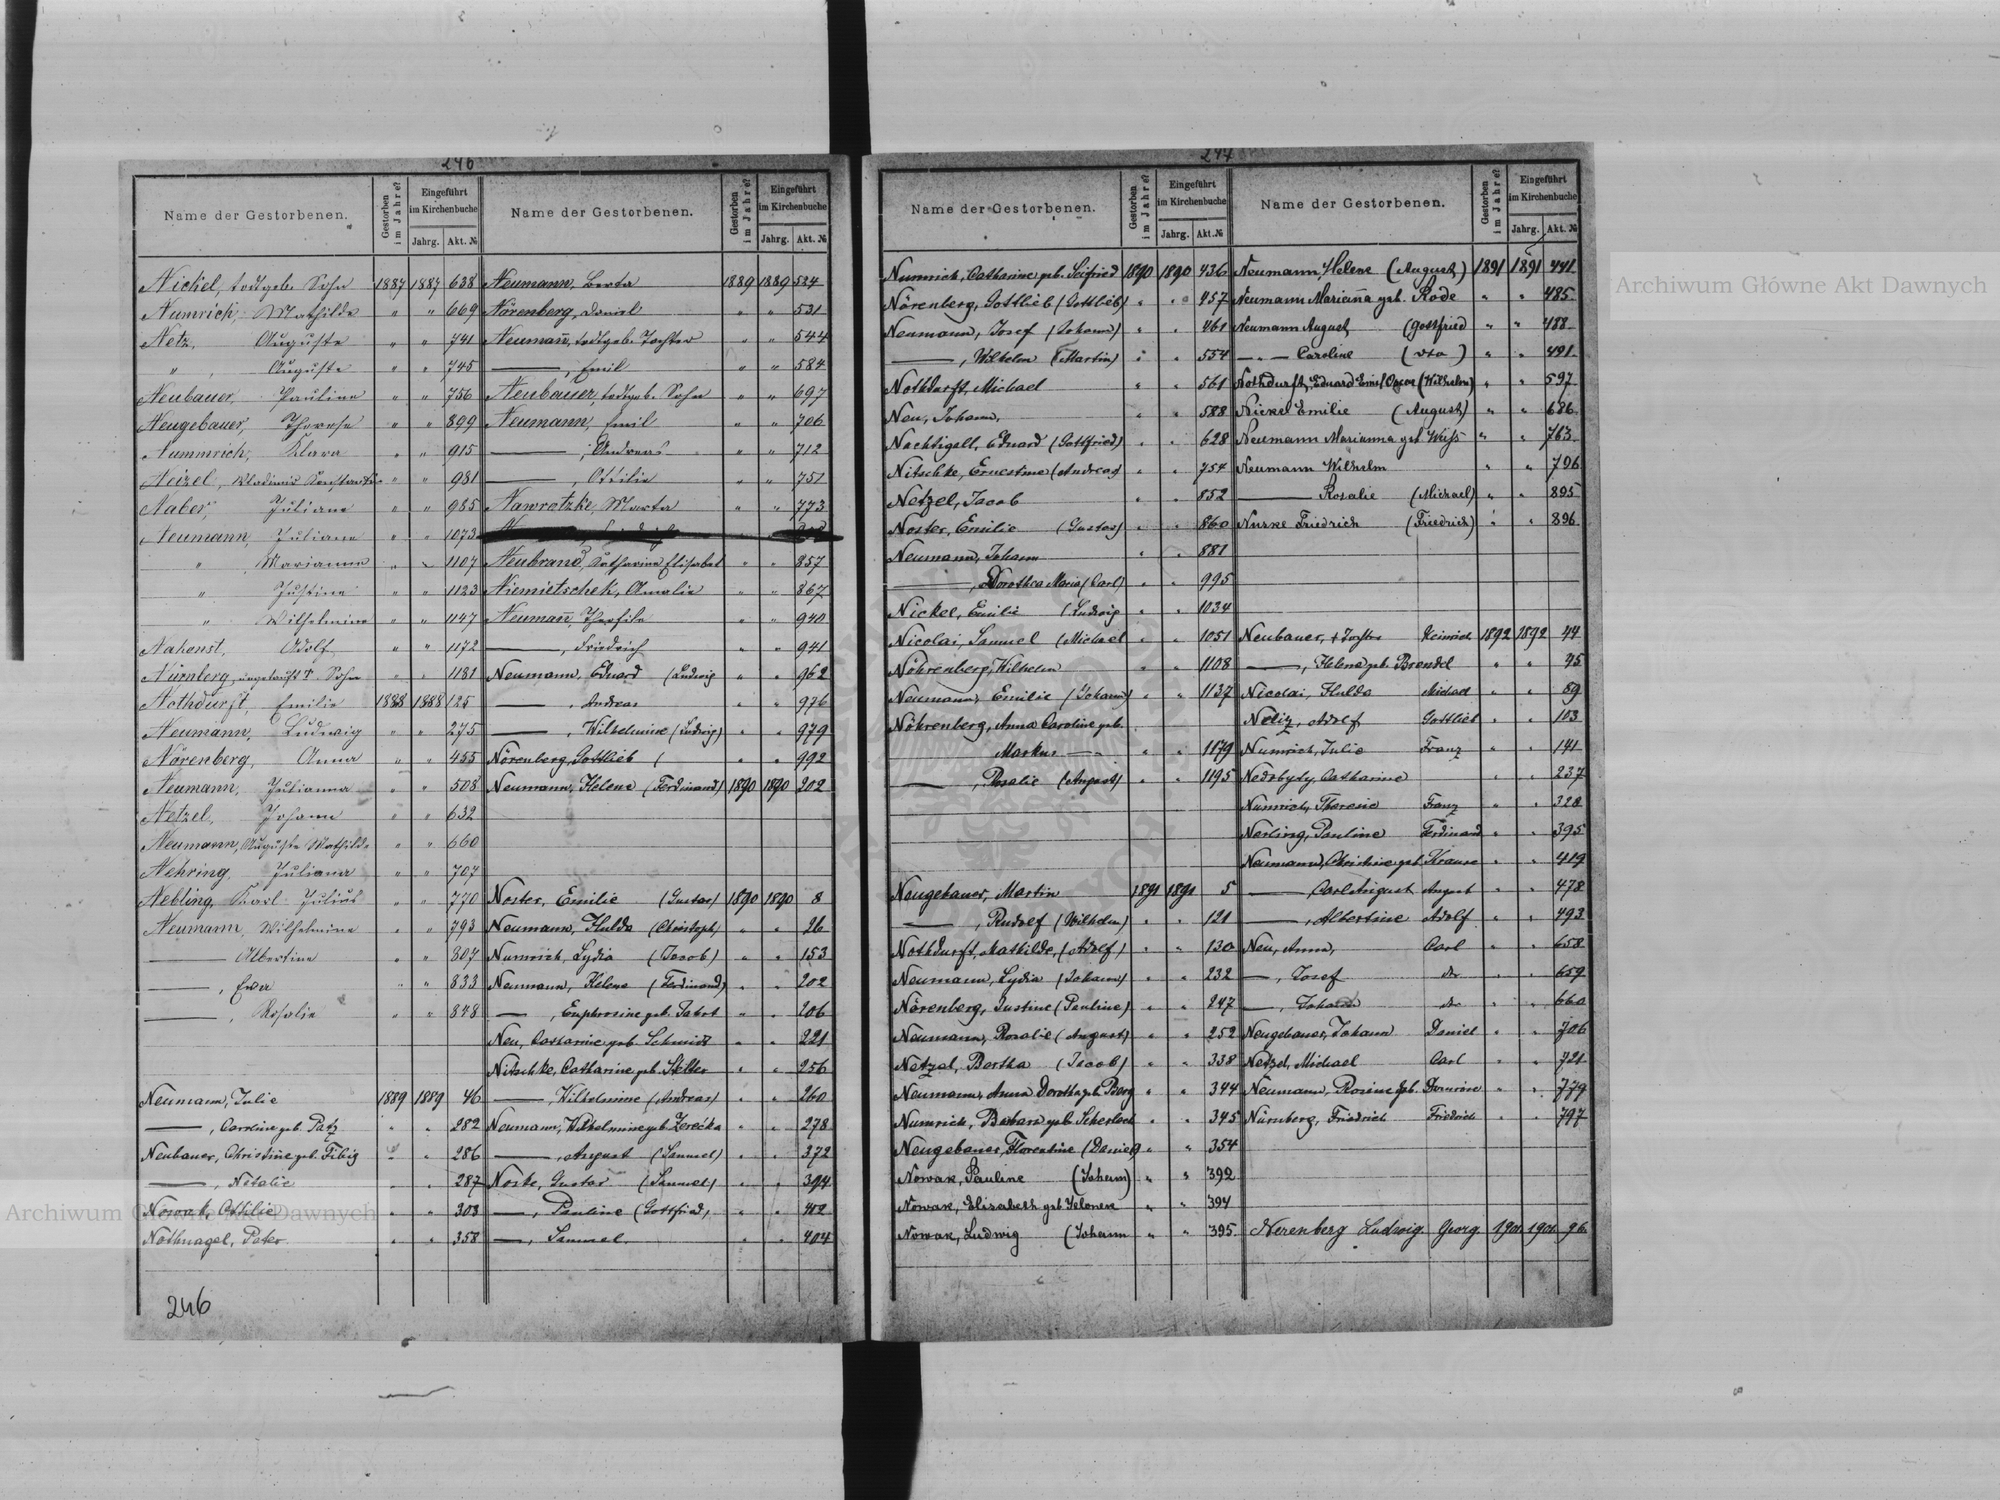 246
Name der Gestorbenen.
Gestorben im Jahre?
Eingeführt im Kirchenbuche
Jahrg.
Akt. №
Nickel, todtgeb. Sohn 1887 1887 638
Numrich, Mathilde " " 669
Netz, Auguste " " 741
" , Auguste " " 745
Neubauer, Pauline " " 756
Neugebauer, Therese " " 899
Nummrich, Klara " " 915
Neizel, Wladimir " " 981
Naber, Juliane " " 985
Neumann, Juliane " " 1073
" Marianne " " 1107
" Justine " " 1123
" Wilhelmine " " 1147
Nahonst, Adolf " " 1172
Nürnberg, ungetauft Sohn " " 1181
Nothdurft, Emilie 1888 1888 125
Neumann, Ludwig " " 275
Nörenberg, Anna " " 455
Neumann, Julianna " " 508
Netzel, Johann " " 632
Neumann, Auguste Mathilde " " 660
Nehring, Juliana " " 707
Nebling, Karl Julius " " 770
Neumann, Wilhelmine " " 793
—— Albertine " " 807
——, Ewa " " 833
——, Rosalie " " 848
Neumann, Julie 1889 1889 46
——, Caroline geb. Patz " " 282
Neubauer, Christine geb. Fibig " " 286
——, Natalie " " 287
Nowak, Ottilie " " 303
Nothnagel, Peter " " 358
246
Name der Gestorbenen.
Gestorben im Jahre?
Eingeführt im Kirchenbuche
Jahrg.
Akt. №
Neumann, Berta 1889 1889 524
Nörenberg, Daniel " " 531
Neumann, todtgeb. Tochter " " 544
——, Emil " " 584
Neubauer, todtgeb. Sohn " " 697
Neumann, Emil " " 706
——, Andreas " " 712
——, Ottilie " " 751
Nawrotzke, Marta " " 773
Neubrand, Katharina Elisabet " " 857
Niemietschek, Amalie " " 867
Neumann, Theofile " " 940
——, Friedrich " " 941
Neumann, Eduard (Ludwig " " 962
——, Andreas " " 976
——, Wilhelmine (Ludwig) " " 979
Nörenberg, Gottlieb ( " " 992
Neumann, Helene (Ferdinand) 1890 1890 202
Noster, Emilie (Gustav) 1890 1890 8
Neumann, Hulda (Christoph) " " 26
Numrich, Lydia (Jacob) " " 153
Neumann, Helene (Ferdinand) " " 202
——, Euphrosine geb. Pabst " " 206
Neu, Catharine geb. Schmidt " " 221
Nitschke, Catharine geb. Stelter " " 256
——, Wilhelmine (Andreas) " " 260
Neumann, Wilhelmine geb. Zerecka " " 278
——, August (Samuel) " " 372
Noske, Gustav (Samuel) " " 394
——, Pauline (Gottfried) " " 402
——, Samuel " " 404
247
Name der Gestorbenen.
Gestorben im Jahre?
Eingeführt im Kirchenbuche
Jahrg.
Akt. №
Numrich, Catharine geb. Seifried 1890 1890 436
Nörenberg, Gottlieb (Gottlieb) " " 457
Neumann, Josef (Johann) " " 461
——, Wilhelm (Martin) " " 554
Nothdurft, Michael " " 561
Neu, Johann, " " 588
Nachtigall, Eduard (Gottfried) " " 628
Nitschke, Ernestine (Andreas) " " 754
Netzel, Jacob " " 852
Noster, Emilie (Gustav) " " 860
Neumann, Johann " " 881
——, Dorothea Maria (Carl) " " 995
Nickel, Emilie (Ludwig " " 1034
Nicolai, Samuel (Michael " " 1051
Nöhrenberg, Wilhelm " " 1108
Neumann, Emilie (Johann) " " 1137
Nöhrenberg, Anna Caroline geb.
Markus —— " " 1179
——, Rosalie (August) " " 1195
Neugebauer, Martin 1891 1891 5
——, Rudolf (Wilhelm) " " 121
Nothdurft, Mathilde, (Adolf) " " 130
Neumann, Lydia (Johann) " " 232
Nörenberg, Justine (Pauline) " " 247
Neumann, Rosalie (August) " " 252
Netzel, Bertha (Jacob) " " 338
Neumann, Anna Dorothea geb. Berg " " 344
Numrich, Barbara geb. Scherlach " " 345
Neugebauer, Florentine (Daniel) " " 354
Nowak, Pauline (Johann) " " 392
Nowak, Elisabeth geb. " " 394
Nowak, Ludwig (Johann " " 395
Name der Gestorbenen.
Gestorben im Jahre?
Eingeführt im Kirchenbuche
Jahrg.
Akt. №
Neumann, Helene (August) 1891 1891 441
Neumann Marianna geb. Rode " " 485
Neumann August (Gottfried " " 488
— " — Caroline (dto) " " 491
Nothdurft, Eduard Emil Oscar (Wilhelm) " " 597
Nickel Emilie (August) " " 686
Neumann Marianna geb Weiss " " 763
Neumann Wilhelm " " 796
—— Rosalie (Michael) " " 895
Nurke Friedrich (Friedrich) " " 896
Neubauer, † Tochter Heinrich 1892 1892 44
——, Helena geb. Brendel " " 45
Nicolai, Hulda Michael " " 59
Netiz, Adolf Gottlieb " " 103
Numrich, Julie Franz " " 141
Nedobyty, Catharine " " 237
Numrich, Theresie Franz " " 328
Nerling, Pauline Ferdinand " " 395
Neumann, Christine geb. Krause " " 419
—— Carl August August " " 478
——, Albertine Adolf " " 493
Neu, Anna, Carl " " 658
——, Josef do " " 659
——, Johann do " " 660
Neugebauer, Johann Daniel " " 706
Netzel, Michael Carl " " 721
Neumann, Rosine geb. " " 779
Nürnberg, Friedrich Friedrich " " 797
Nerenberg Ludwig. Georg. 1901 1901 96
Archiwum Główne Akt Dawnych
Archiwum Główne Akt Dawnych